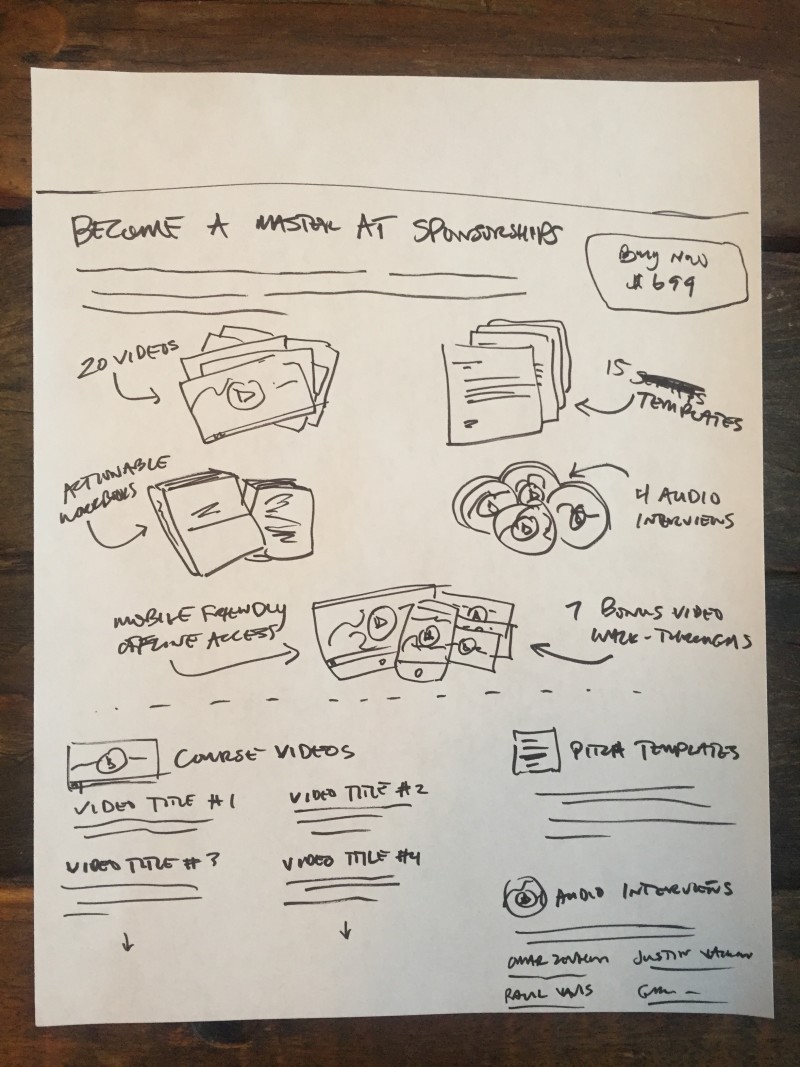 BECOME A MASTER AT SPONSORSHIPS
Buy Now
$699
20 VIDEOS
15
TEMPLATES
ACTIONABLE
WORKBOOKS
4 AUDIO
INTERVIEWS
MOBILE FRIENDLY
OFFLINE ACCESS
7 BONUS VIDEO
WALK-THROUGHS
COURSE VIDEOS
PITCH TEMPLATES
VIDEO TITLE #1
VIDEO TITLE #2
VIDEO TITLE #3
VIDEO TITLE #4
AUDIO INTERVIEWS
OMAR
JUSTIN